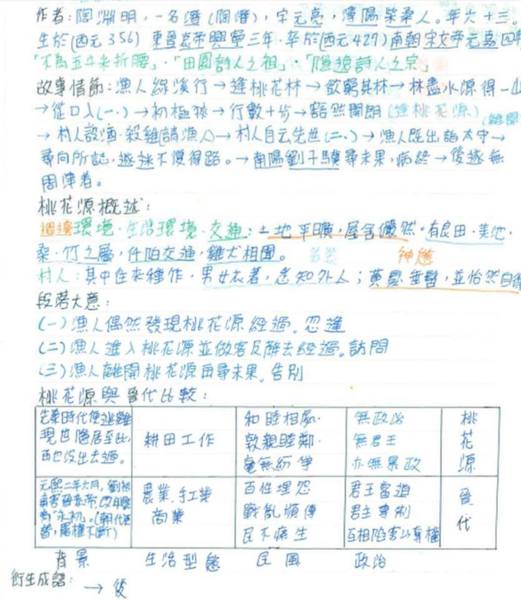 作者:陶淵明,一名潛(陶潛),字元亮,潯陽柴桑人。年六十三。
生於(西元356) 東晉哀帝興寧三年,卒於(西元427)南朝宋文帝元嘉四年
「不為五斗米折腰」、「田園詩人之祖」、「隱逸詩人之宗」
故事情節:漁人緣溪行→逢桃花林→欲窮其林→林盡水源得一山
→從口入(一)→初極狹→行數十步→豁然開朗(進桃花源)
→村人設酒、殺雞請漁人→村人自云先世(二)→漁人既出詣太守→
尋向所誌,遂迷不復得路。→南陽劉子驥尋未果,病終→後遂無
問津者。
桃花源概述:
環境、生活環境、交通:土地平曠,屋舍儼然,有良田、美池、
桑、竹之屬,阡陌交通,雞犬相聞。 神態
村人:其中往來種作,男女衣著,悉如外人;黃髮垂髫,並怡然自得
段落大意:
(一)漁人偶然發現桃花源經過。忽逢
(二)漁人進入桃花源並做客及辭去經過。訪問
(三)漁人離開桃花源再尋未果。告別
桃花源與晉代比較:
耕田工作 和睦相處、敦親睦鄰、毫無紛爭 無政治 無君王 亦無暴政 桃花源
農業、手工業 商業 百姓埋怨 戰亂頻傳 民不聊生 君王當道 君主專制 晉代
背景 生活型態 民風 政治
衍生成語: → 後